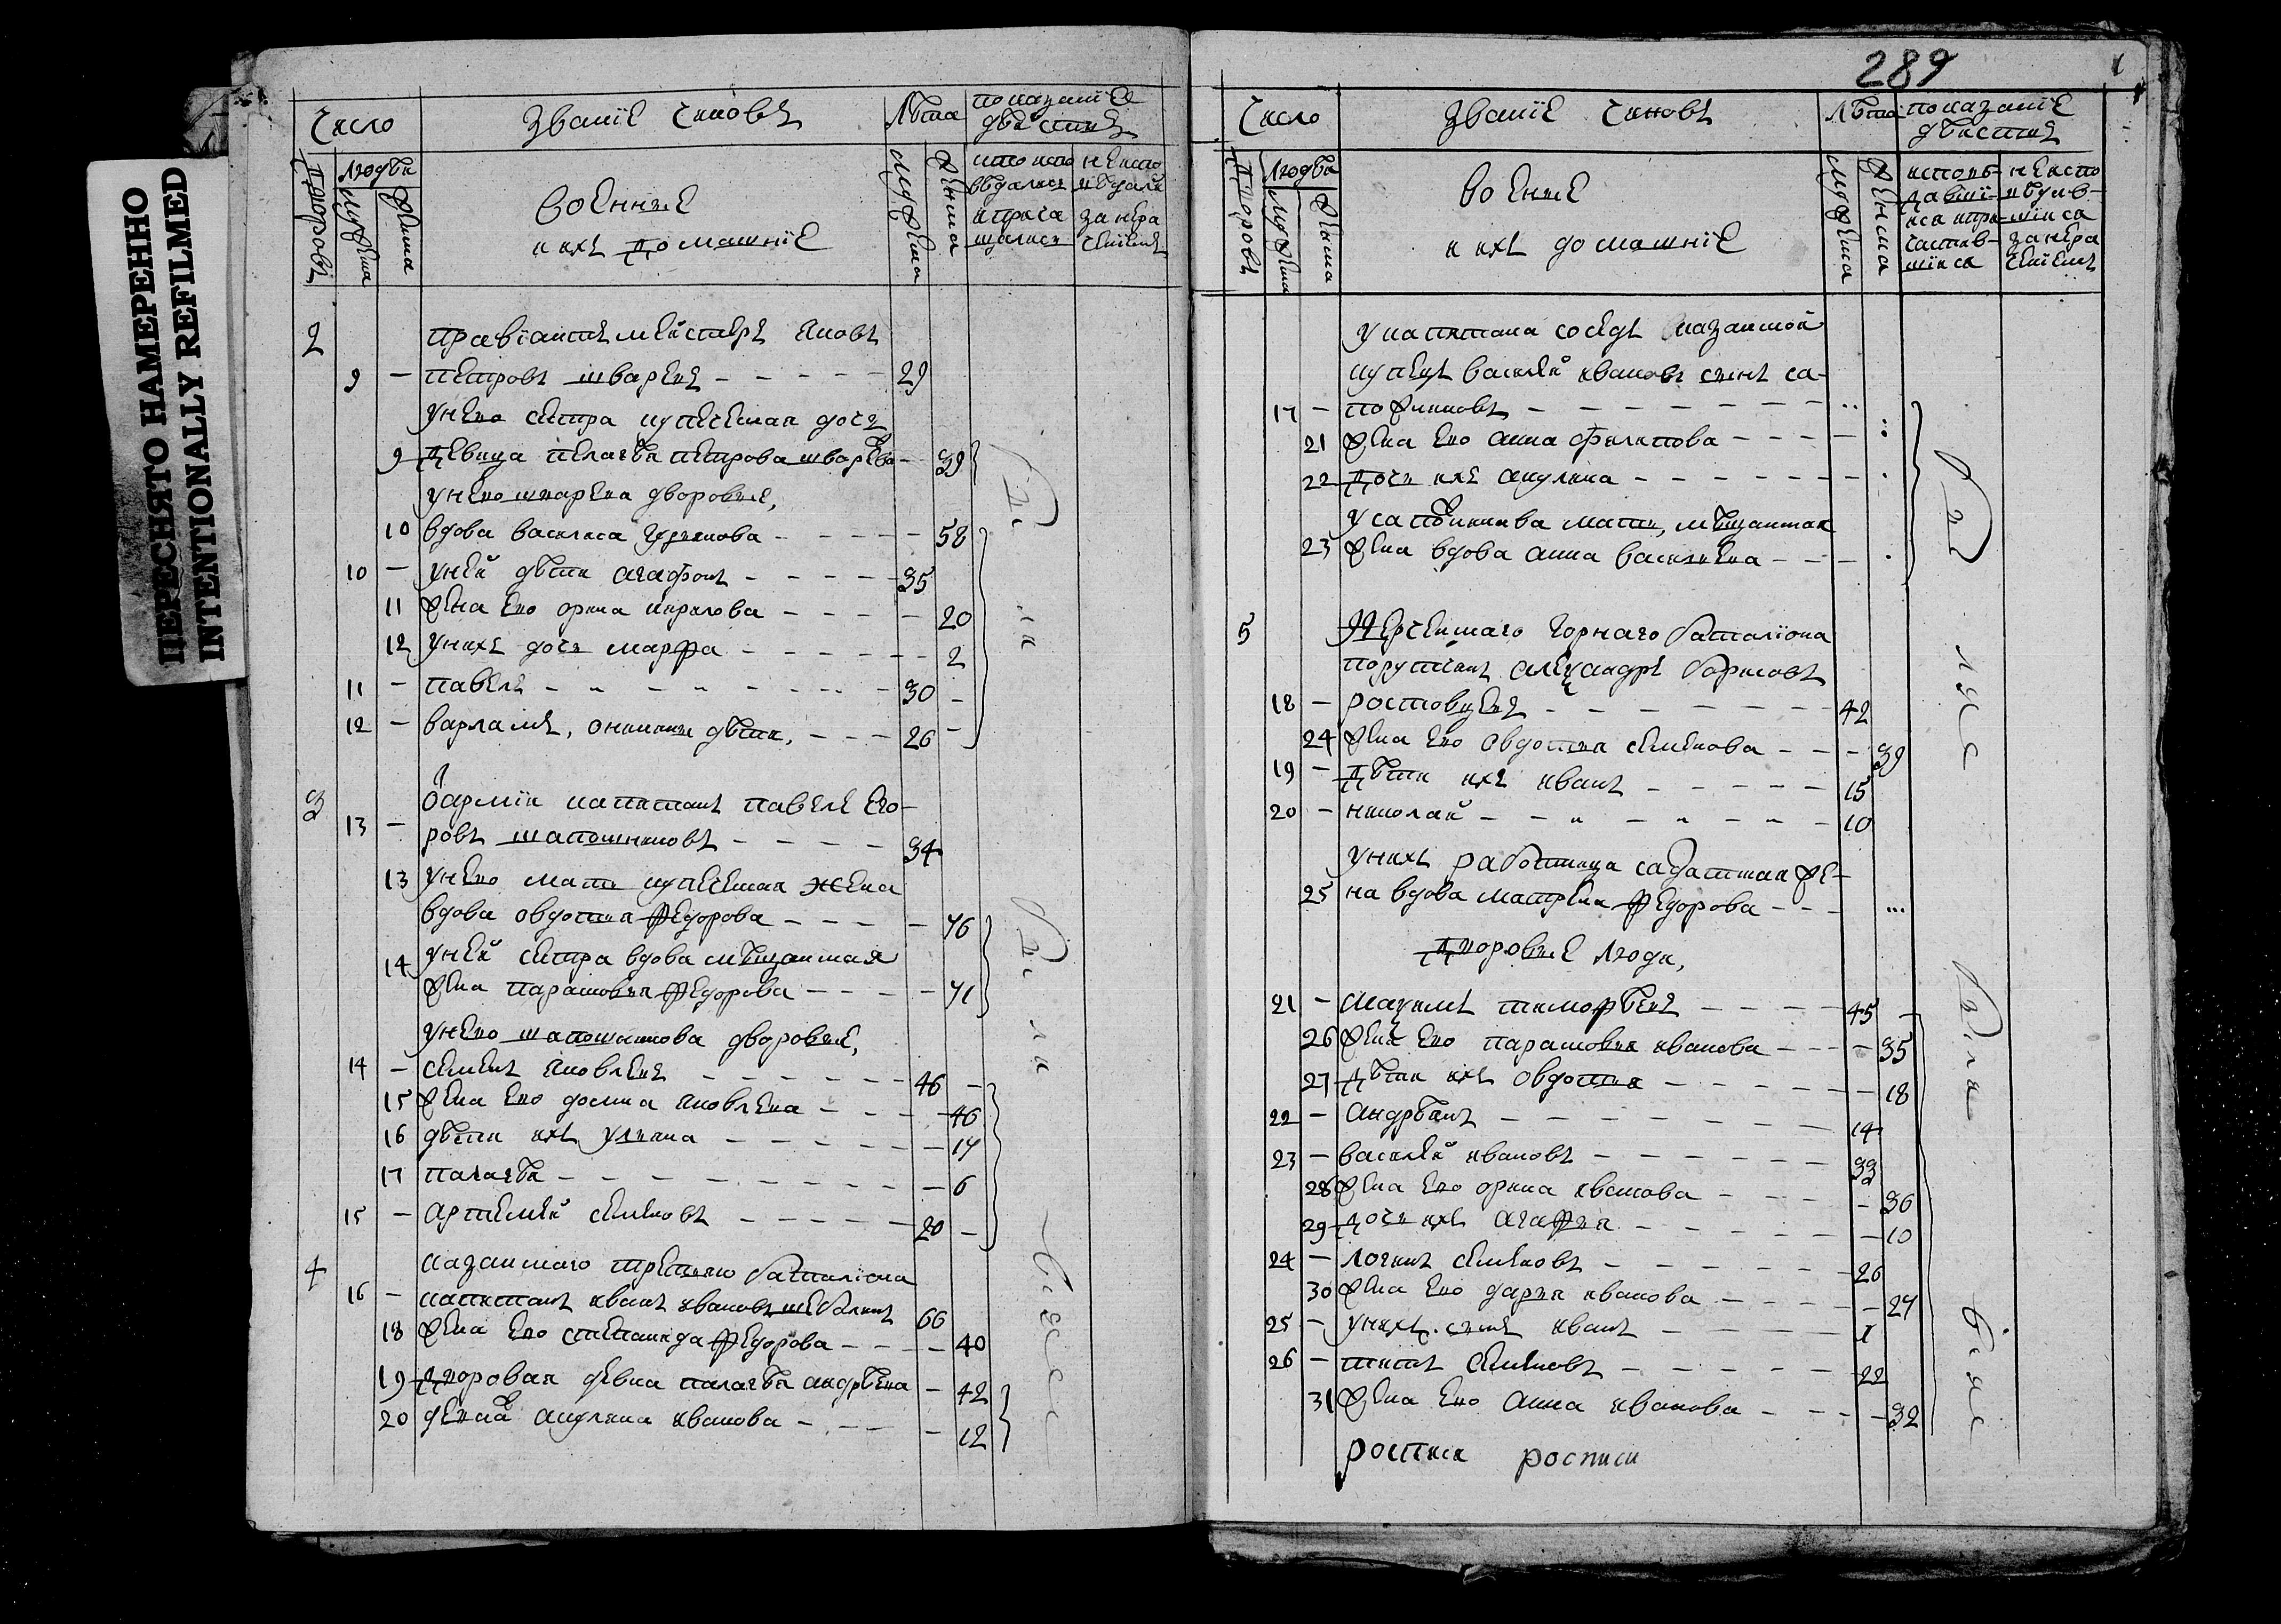 ПЕРЕСНЯТО НАМЕРЕННО
INTENTIONALLY REFILMED
Число
Званїе чиновъ
Лѣта
показанїе
дѣйствъ
дворовъ
людѣй
мужеска
женска
военные
и ихъ домашнїе
мужеска
женска
кто испо
вѣдался
и прича
щался
не испо
вѣдалъ
за нера
ченїемъ
2
правїантмейстеръ яковъ
9 — петровъ шваревъ — 29
у него сестра купеческая дочь
9 девица пелагѣя петрова шварева — 39
у него шварева дворовые,
10 вдова василиса — 58
10 — у ней дѣти агафонъ — 35
11 жена ево орина кирилова — 20
12 у нихъ дочь марфа — 2
11 — павелъ — 30 —
12 — варламъ, дѣти, — 26 —
3
армїи капитанъ павелъ его-
13 — ровъ шапошниковъ — 34
13 у него мать купеческая жена
вдова овдотья федорова — 76
14 у ней сестра вдова мѣщанская
жена парасковья федорова — 71
у него шапошникова дворовые,
14 — семенъ яковлевъ — 46 —
15 жена ево домна яковлева — 46
16 дѣти ихъ улияна — 17
17 палагѣя — 6
15 — артемей семеновъ — 20 —
4
казанскаго третьяго баталїона
16 — капитанъ иванъ ивановъ 66
18 жена ево степанида федорова — 40
19 дворовая девка палагѣя андрѣева — 42
20 девка акулина иванова — 12
289
Число
Званїе чиновъ
Лѣта
показанїе
дѣйствъ
дворовъ
людѣй
мужеска
женска
военные
и ихъ домашнїе
мужеска
женска
исповѣ-
давшї-
ися и при
частив-
шїися
не испо
вѣдав-
шїися
за нера
ченїемъ
у капитана соседъ казанской
купецъ василей ивановъ сынъ са-
17 — пожниковъ —
21 жена ево анна филипова —
22 дочь ихъ акулина —
у сапожникова мать, мѣщанская
23 жена вдова анна васильева —
5
горнаго баталїона
порутчикъ александръ борисовъ
18 — ростовцевъ — 42
24 жена ево овдотья семенова — 39
19 — дѣти ихъ иванъ — 15
20 — николай — 10
у нихъ работница салдатская же-
25 на вдова матрена федорова —
дворовые люди,
21 — максимъ тимофѣевъ — 45 —
26 жена ево парасковья иванова — 35
27 дѣти ихъ овдотья — 18
22 — андрѣянъ — 14
23 — василей ивановъ — 33
28 жена ево орина иванова — 36
29 дочь ихъ агафья — 10
24 — логинъ семеновъ — 26
30 жена ево дарья иванова — 27
25 — у нихъ сынъ иванъ — 1
26 — титъ семеновъ — 22
31 жена ево анна иванова — 32
росписи росписи